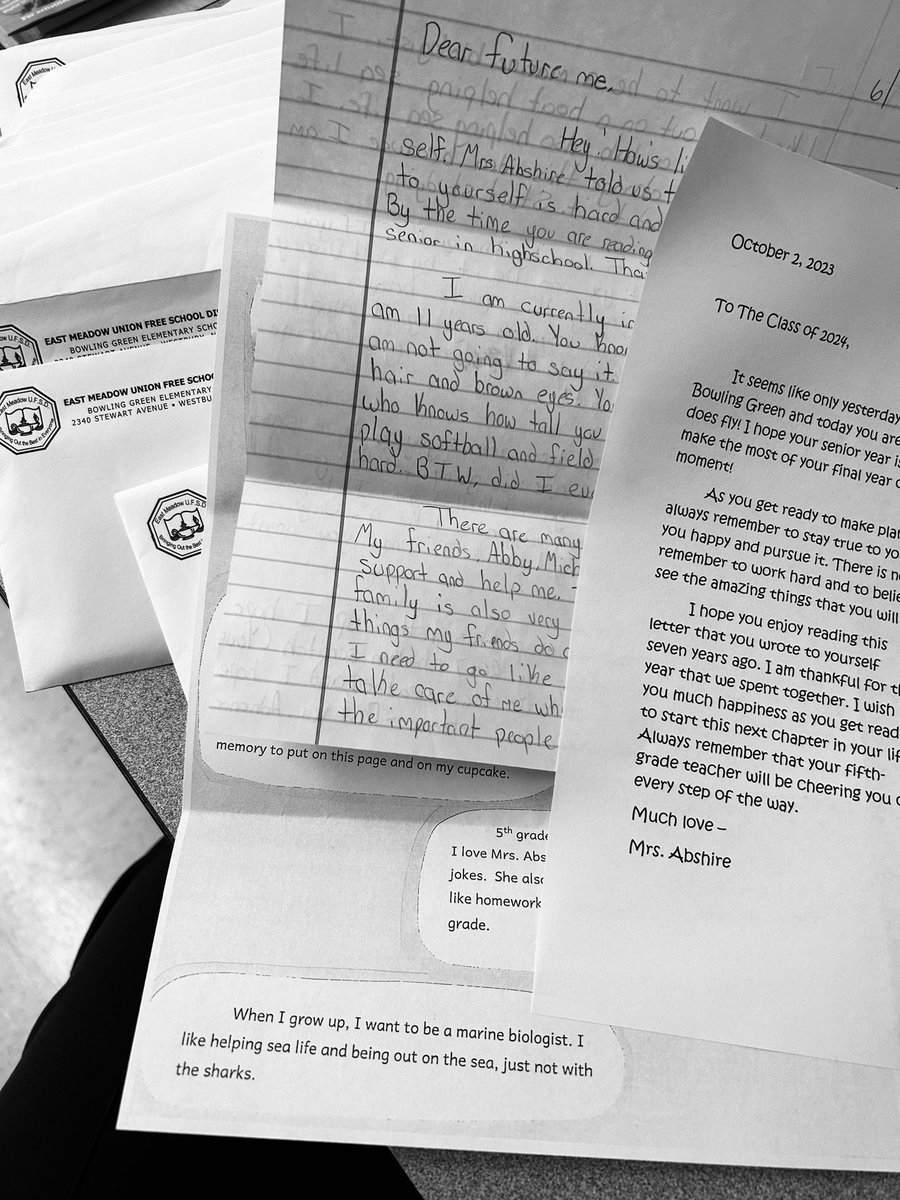 East Meadow
EAST MEADOW UNION FREE SCHOOL DI
BOWLING GREEN ELEMENTARY SCHO
U.F.S.D.
EAST MEADOW UNION FREE SCHOO
BOWLING GREEN ELEMENTAR
2340 STEWART AVENUE • WESTBU
Bringing Out the Best in
East Meadow U.F.S.D.
Bringing Out the Best in
Dear future me,
6/
Hey. How's li
self. Mrs. Abshire told us t
to yourself is hard and
By the time you are reading
senior in highschool. Tha
I am currently in
am 11 years old. You know
am not going to say it.
hair and brown eyes. Yo
who knows how tall you
play softball and field
hard. BTW, did I ev
There are many
My friends, Abby, Mich
support and help me.
family is also very
things my friends do
I need to go like
take care of me wh
the important people
memory to put on this page and on my cupcake.
5th grade
I love Mrs. Abs
jokes. She also
like homework
grade.
When I grow up, I want to be a marine biologist. I
like helping sea life and being out on the sea, just not with
the sharks.
October 2, 2023
To The Class of 2024,
It seems like only yesterday
Bowling Green and today you are
does fly! I hope your senior year is
make the most of your final year
moment!
As you get ready to make plan
always remember to stay true to yo
you happy and pursue it. There is n
remember to work hard and to belie
see the amazing things that you will
I hope you enjoy reading this
letter that you wrote to yourself
seven years ago. I am thankful for th
year that we spent together. I wish
you much happiness as you get read
to start this next chapter in your lif
Always remember that your fifth-
grade teacher will be cheering you o
every step of the way.
Much love –
Mrs. Abshire